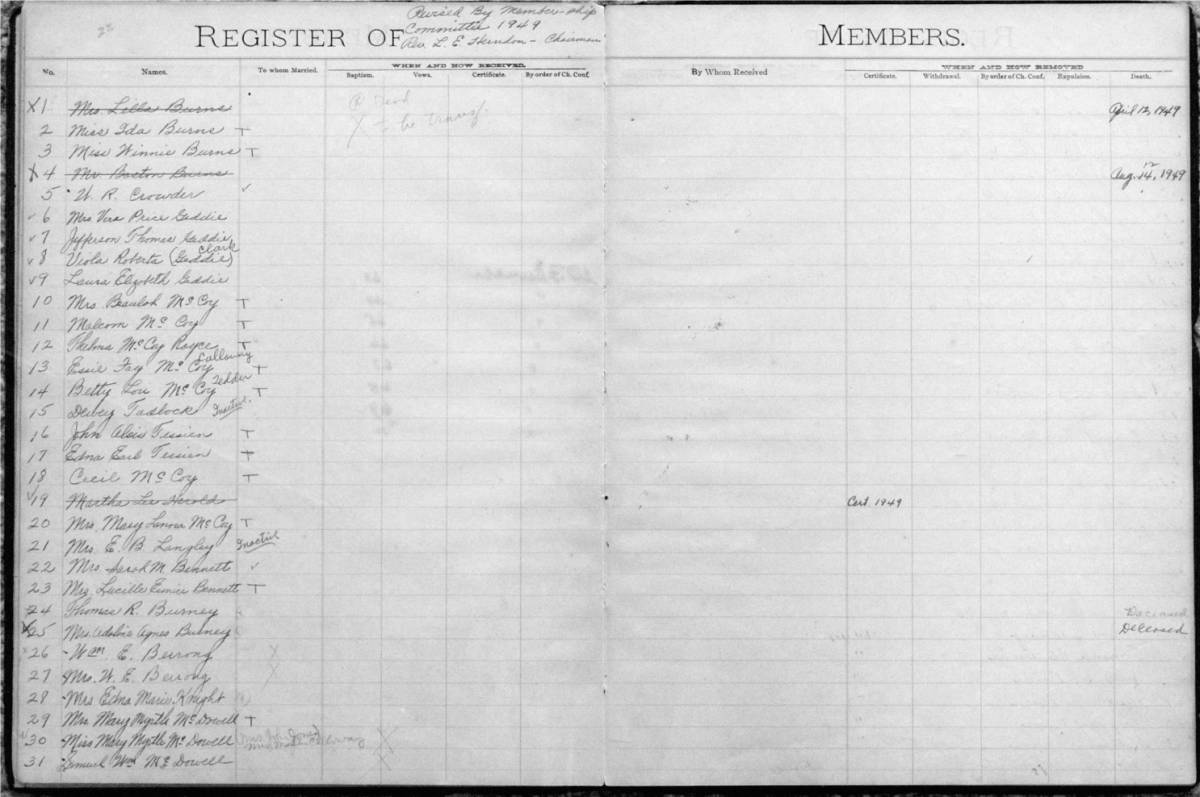 Revised By Member-ship
Committee 1949
Rev. L. E. Herndon - Chairman
REGISTER OF MEMBERS.
WHEN AND HOW RECEIVED. WHEN AND HOW REMOVED
No. Names. To whom Married. Baptism. Vows. Certificate. By order of Ch. Conf. By Whom Received Certificate. Withdrawal. By order of Ch. Conf. Expulsion. Death.
X 1 Mrs. Lella Burns April 12, 1949
2 Miss Ida Burns T X to be transf.
3 Miss Winnie Burns T
X 4 Mr. Boston Burns Aug. 14, 1949
5 W. R. Crowder ✓
✓ 6 Mrs Vera Price Geddie
✓ 7 Jefferson Thomas Geddie
Clark
✓ 8 Viola Roberta (Geddie)
✓ 9 Laura Elizabeth Geddie
10 Mrs. Beaulah McCoy T
11 Malcom McCoy T
12 Thelma McCoy Royce T
13 Essie Fay McCoy T
14 Betty Lou McCoy Tedder T
15 Dewey Tadlock Inactive.
16 John Alois Tessien T
17 Edna Earl Tessien T
18 Cecil McCoy T
✓ 19 Martha Lee Herold Cert. 1949
20 Mrs. Mary Lenora McCoy T
21 Mrs. E. B. Langley Inactive
22 Mrs. Sarah M. Bennett ✓
23 Mrs. Lucille Eunice Bennett T
24 Thomas R. Burney Deceased
X 25 Mrs. Adobia Agnes Burney Deceased
26 Wm. E. Berrong X
27 Mrs. W. E. Berrong X
28 Mrs Edna Marie Knight
29 Mrs. Mary Myrtle McDowell T
30 Miss Mary Myrtle McDowell X
31 Samuel Wm McDowell X